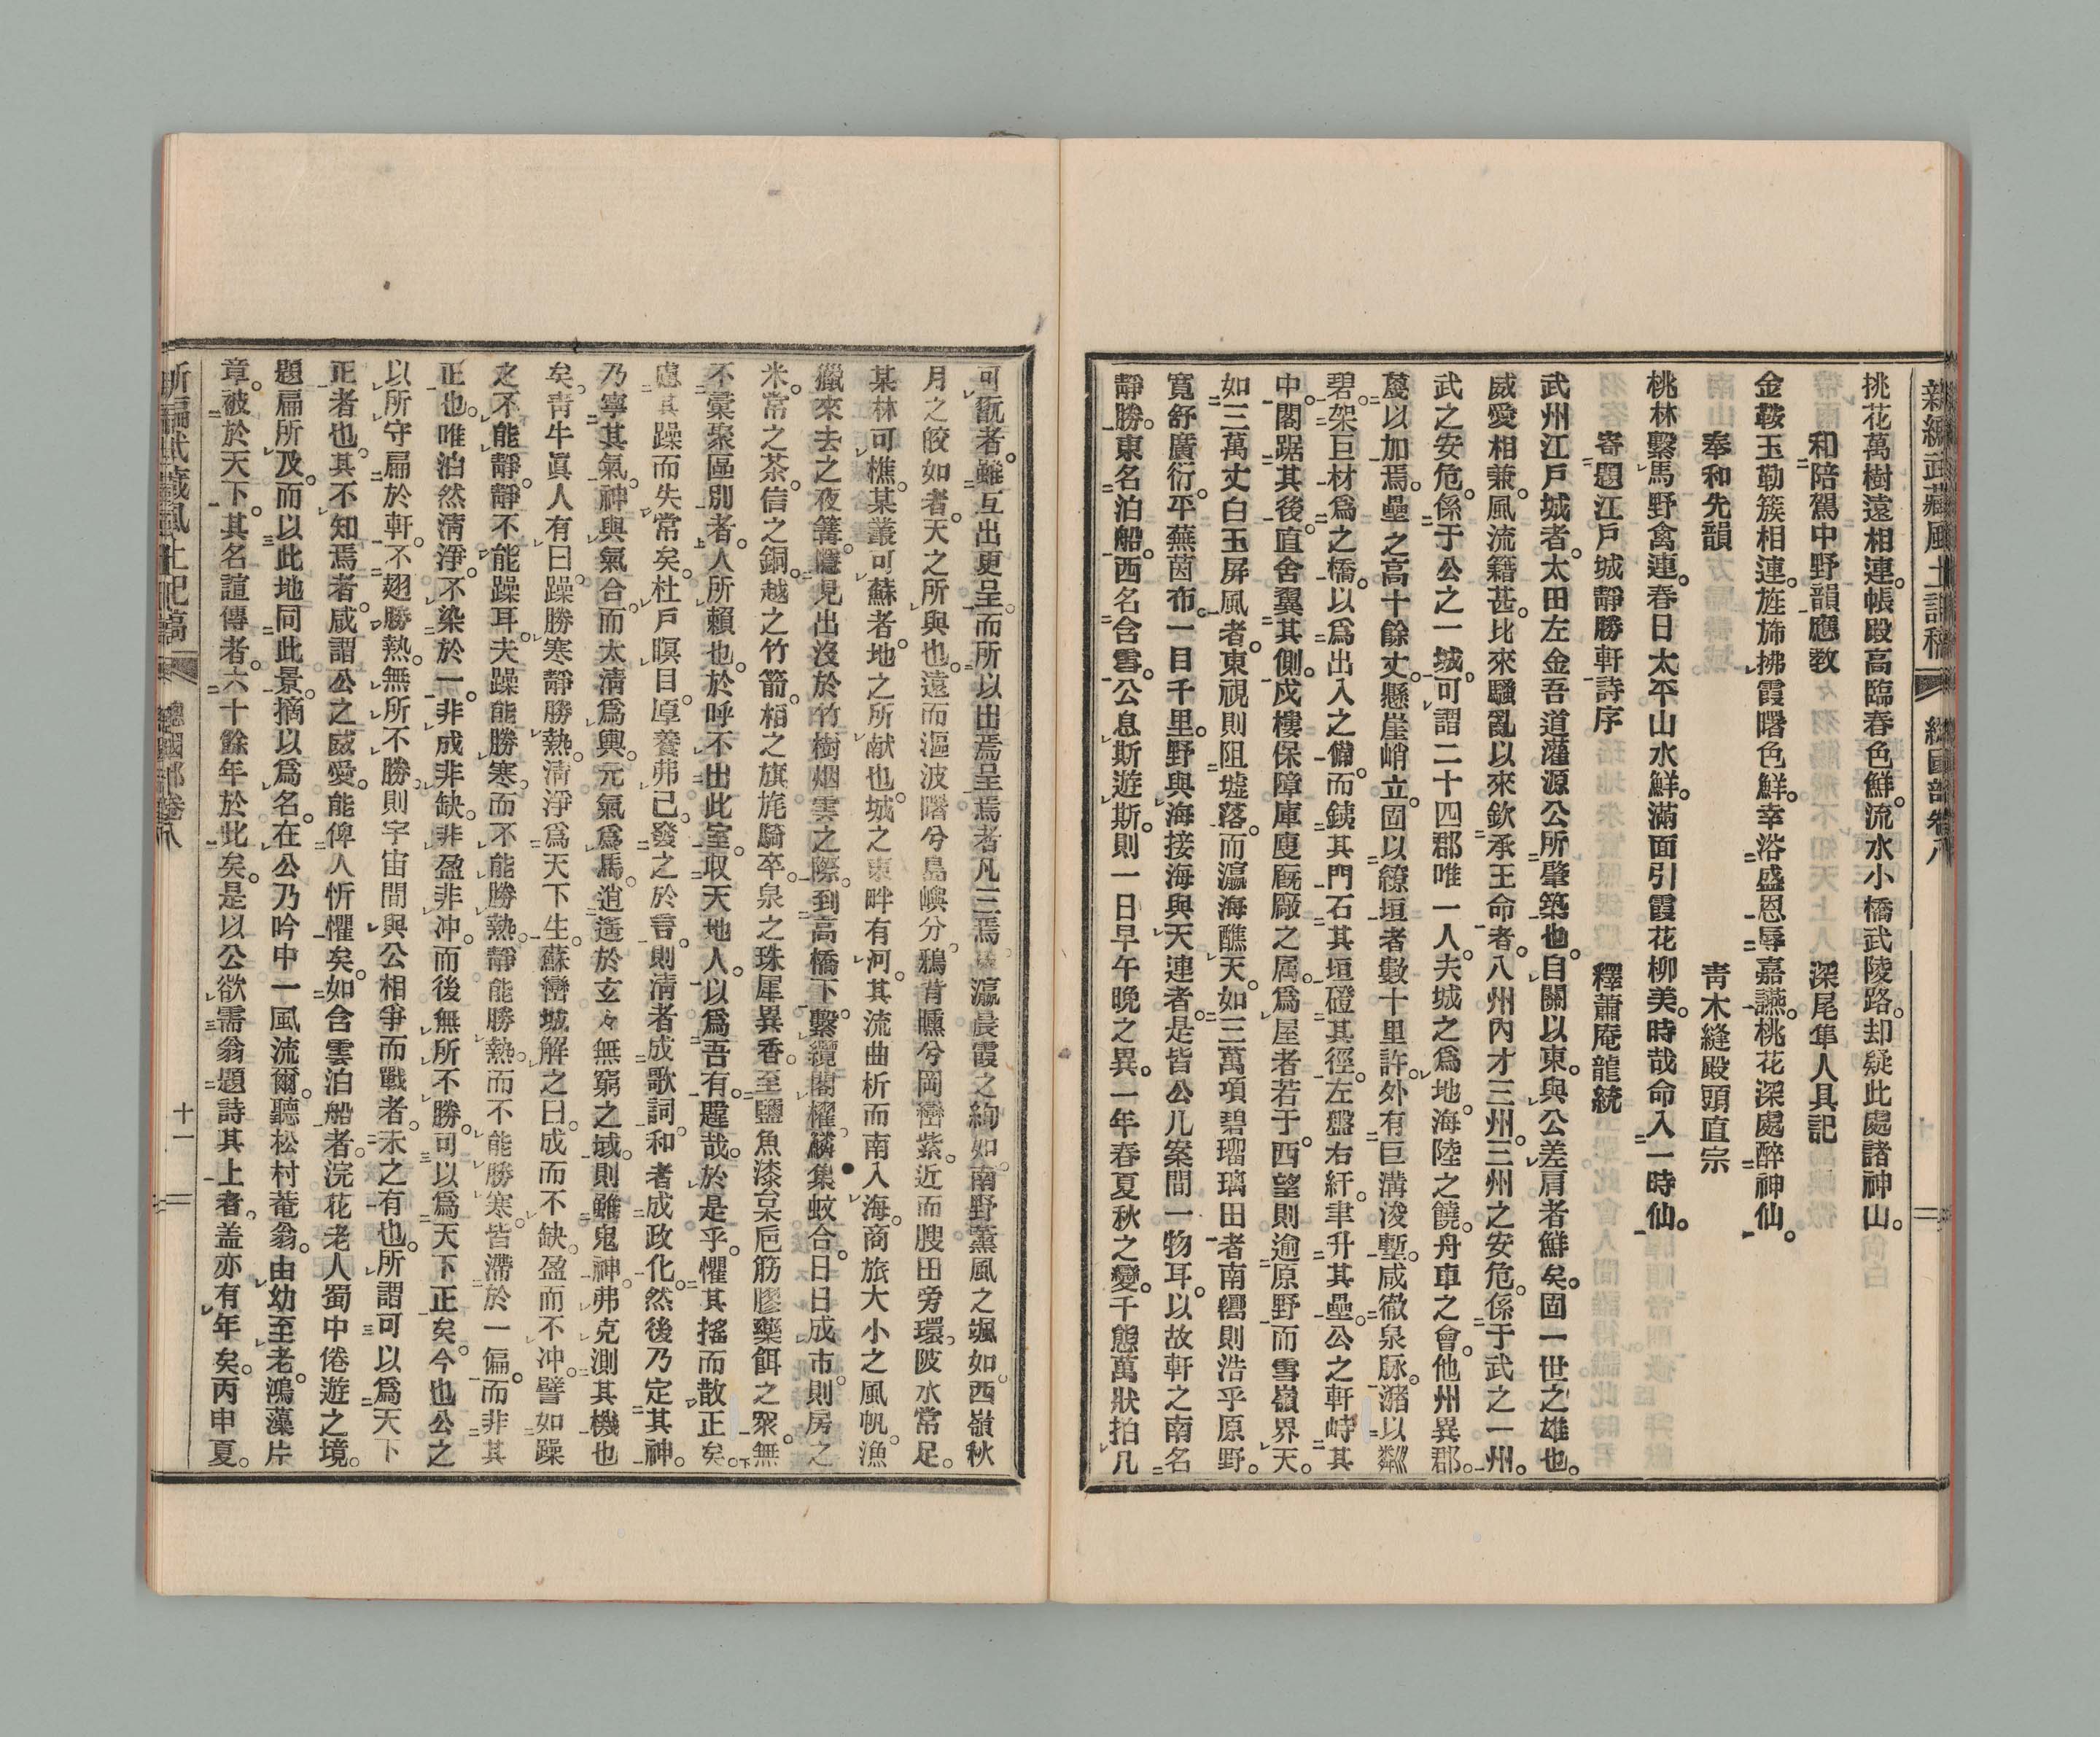 新編武藏風土記稿 總國部卷八
桃花萬樹遠相連。帳殿高臨春色鮮。流水小橋武陵路。却疑此處諸神山。
和陪駕中野韻應敎 深尾隼人具記
金鞍玉勒簇相連。旌旆拂霞曙色鮮。幸浴盛恩辱嘉讌。桃花深處醉神仙。
奉和先韻 靑木縫殿頭直宗
桃林繫馬野禽連。春日太平山水鮮。滿面引霞花柳美。時哉命入一時仙。
寄題江戶城靜勝軒詩序 釋蕭庵龍統
武州江戶城者。太田左金吾道灌源公所肇築也。自關以東。與公差肩者鮮矣。固一世之雄也。
威愛相兼。風流籍甚。比來騷亂以來欽承王命者。八州內才三州。三州之安危。係于武之一州。
武之安危。係于公之一城。可謂二十四郡唯一人。夫城之爲地。海陸之饒。舟車之會。他州異郡。
蔑以加焉。壘之高十餘丈。懸崖峭立。固以繚垣者數十里許。外有巨溝浚塹。咸徹泉脉。瀦以粼
碧。架巨材爲之橋。以爲出入之備。而銕其門石其垣磴其徑。左盤右紆。聿升其壘。公之軒峙其
中。閣踞其後。直舍翼其側。戍樓保障庫庾廐廠之属。爲屋者若于。西望則逾原野而雪嶺界天。
如三萬丈白玉屛風者。東視則阻墟落。而瀛海蘸天。如三萬項碧瑠璃田者南嚮則浩乎原野。
寬舒廣衍。平蕪茵布。一目千里。野與海接海與天連者。是皆公几案間一物耳。以故軒之南名
靜勝。東名泊船。西名含雪。公息斯遊斯。則一日早午晚之異。一年春夏秋之變。千態萬狀拍几
可翫者。雖互出更呈。而所以出焉呈焉者凡三焉。瀛晨霞之絢如。南野薰風之颯如。西嶺秋
月之皎如者。天之所與也。遠而漚波曙兮島嶼分。鴉背曛兮岡巒紫。近而膄田旁環。陂水常足。
某林可樵。某叢可蘇者。地之所献也。城之東畔有河。其流曲析而南入海。商旅大小之風帆。漁
獵來去之夜篝。隱見出沒於竹樹烟雲之際。到高橋下。繫纜閣櫂。鱗集蚊合。日日成市。則房之
米。常之茶。信之銅。越之竹箭。相之旗旄騎卒。泉之珠犀異香。至鹽魚漆枲巵筋膠藥餌之衆。無
不彙聚區別者。人所賴也。於呼不出此室。取天地人。以爲吾有。韙哉。於是乎。懼其搖而散正矣。
慮其躁而失常矣。杜戶瞑目。厚養弗已。發之於言。則淸者成歌詞。和者成政化。然後乃定其神。
乃寧其氣。神與氣合。而太淸爲輿。元氣爲馬。逍遙於玄々無窮之域。則雖鬼神。弗克測其機也
矣。靑牛眞人有曰。躁勝寒靜勝熱。淸淨爲天下生。蘇巒城解之曰。成而不缺。盈而不冲。譬如躁
之不能靜。靜不能躁耳。夫躁能勝寒。而不能勝熱。靜能勝熱。而不能勝寒。皆滯於一偏。而非其
正也。唯泊然淸淨。不染於一。非成非缺。非盈非冲。而後無所不勝。可以爲天下正矣。今也公之
以所守扁於軒。不翅勝熱。無所不勝。則宇宙間與公相爭而戰者。未之有也。所謂可以爲天下
正者也。其不知焉者。咸謂公之威愛。能俾人忻懼矣。如含雲泊船者。浣花老人蜀中倦遊之境。
題扁所及。而以此地同此景。摘以爲名。在公乃吟中一風流爾。聽松村菴翁。由幼至老。鴻藻片
章。被於天下。其名諠傳者。六十餘年於此矣。是以公欲需翁題詩其上者。盖亦有年矣。丙申夏。
新編武藏風土記稿 總國部卷八 十一